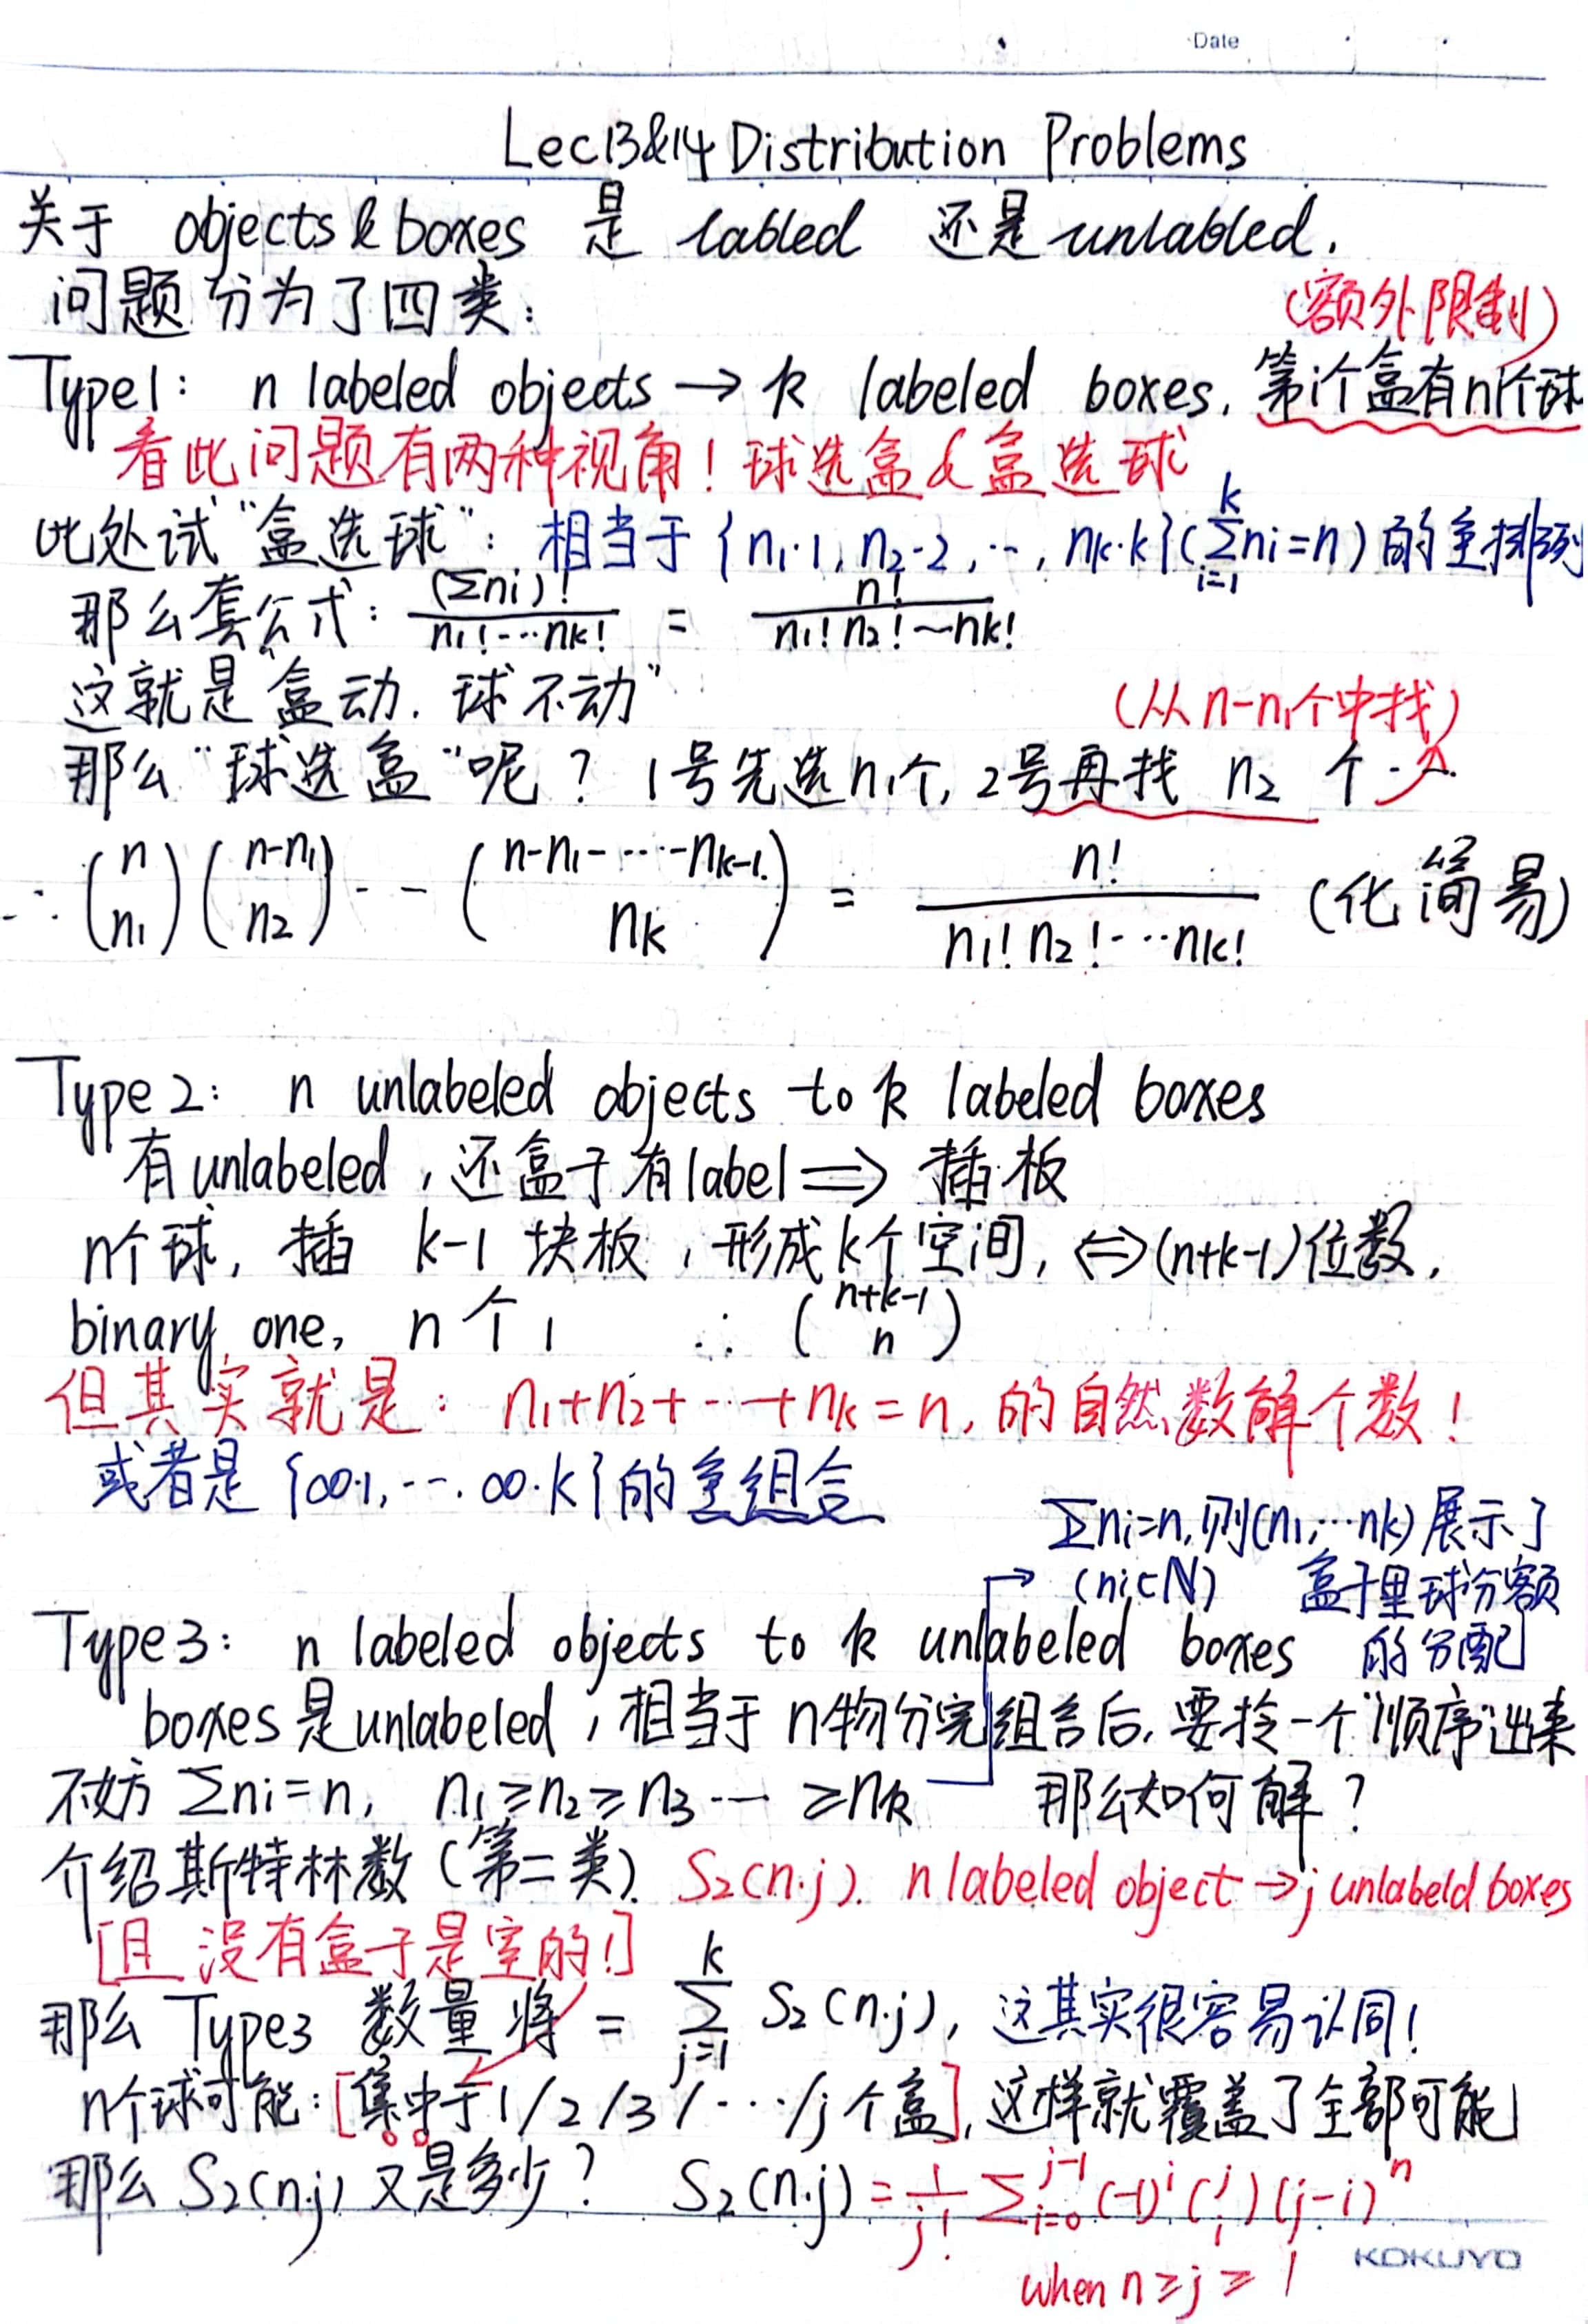 Date
Lec13&14 Distribution Problems
关于 objects & boxes 是 labled 还是 unlabled.
问题分为了四类:
(额外限制)
Type1: n labeled objects → k labeled boxes. 第i个盒有ni个球
看此问题有两种视角! 球选盒 & 盒选球
此处试"盒选球": 相当于 {n₁·1, n₂·2, …, nₖ·k} (∑_{i=1}^{k} ni=n) 的全排列
那么套公式: (∑ni)! / (n₁!…nₖ!) = n! / (n₁! n₂! ~ nₖ!)
这就是"盒动. 球不动"
(从 n-n₁个中找)
那么"球选盒"呢? 1号先选n₁个, 2号再找 n₂ 个…
∴ (n n₁) (n-n₁ n₂) -- (n-n₁-…-nₖ₋₁ nₖ) = n! / (n₁! n₂! … nₖ!) (化简易)
Type 2: n unlabeled objects to k labeled boxes
有unlabeled, 还盒子有label ⟹ 插板
n个球, 插 k-1 块板, 形成k个空间, ⟺(n+k-1)位数,
binary one, n个1 ∴ (n+k-1 n)
但其实就是: n₁+n₂+…+nₖ=n, 的自然数解个数!
或者是 {∞·1, … ∞·k}的全组合
∑ni=n, 则(n₁,…nk) 展示了
→ (ni⊂ℕ) 盒子里球分额
Type3: n labeled objects to k unlabeled boxes 的分配
boxes是unlabeled, 相当于n物分完组合后, 要拎一个顺序出来
不妨 ∑ni=n, n₁≥n₂≥n₃…≥nk 那么如何解?
介绍斯特林数(第二类). S₂(n.j). n labeled object → j unlabeld boxes
[且 没有盒子是空的!]
那么 Type3 数量将 = ∑_{j=1}^{k} S₂(n.j), 这其实很容易认同!
n个球可能:[集中于1/2/3/…/j个盒], 这样就覆盖了全部可能
那么 S₂(n.j) 又是多少? S₂(n.j) = 1/j! ∑_{i=0}^{j-1} (-1)^i (j i) (j-i)^n
when n≥j≥1
KOKUYO